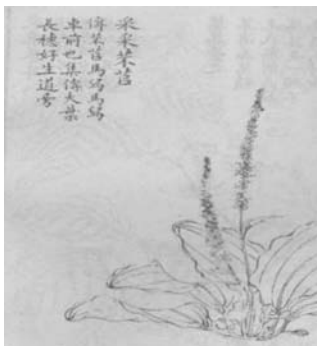 采采芣苢
傳芣苢馬舄馬舄
車前也集傳大葉
長穗好生道旁